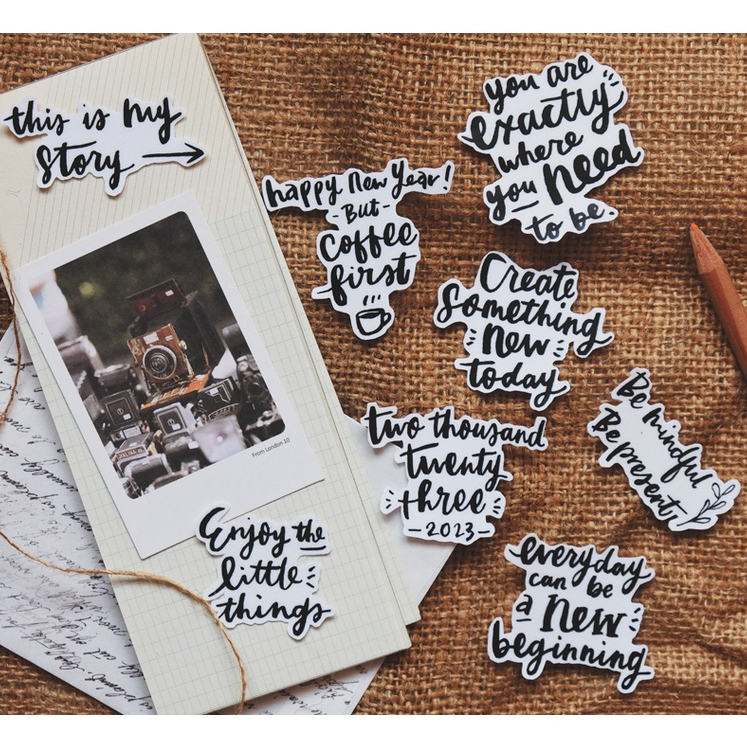 this is my
story
happy New Year!
- But -
coffee
first
you are
exactly
where
you Need
to be.
Create
something
New
today
From London 10
two thousand
twenty
three
- 2023 -
Be mindful
Be present
Enjoy the
little
things
everyday
can be
a New
beginning